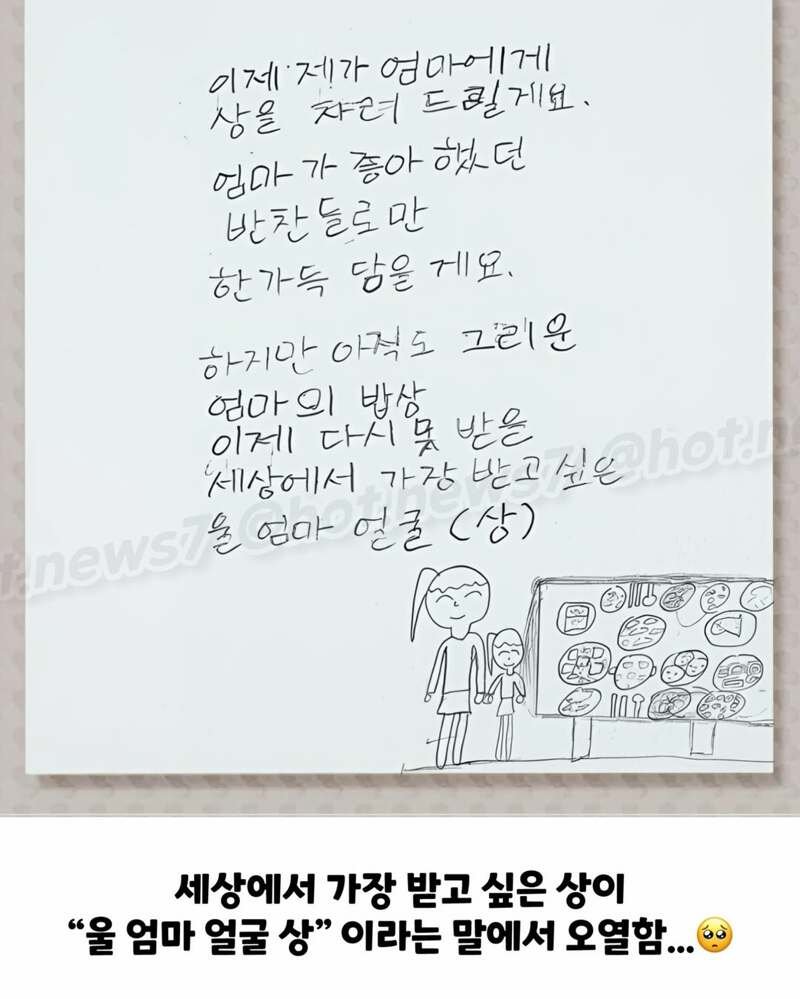 이제 제가 엄마에게
상을 차려 드릴게요.
엄마가 좋아했던
반찬들로만
한가득 담을게요.
하지만 아직도 그리운
엄마의 밥상
이제 다시 못 받을
세상에서 가장 받고 싶은
울 엄마 얼굴 (상)
@hot.news7
세상에서 가장 받고 싶은 상이
“울 엄마 얼굴 상” 이라는 말에서 오열함...🥺